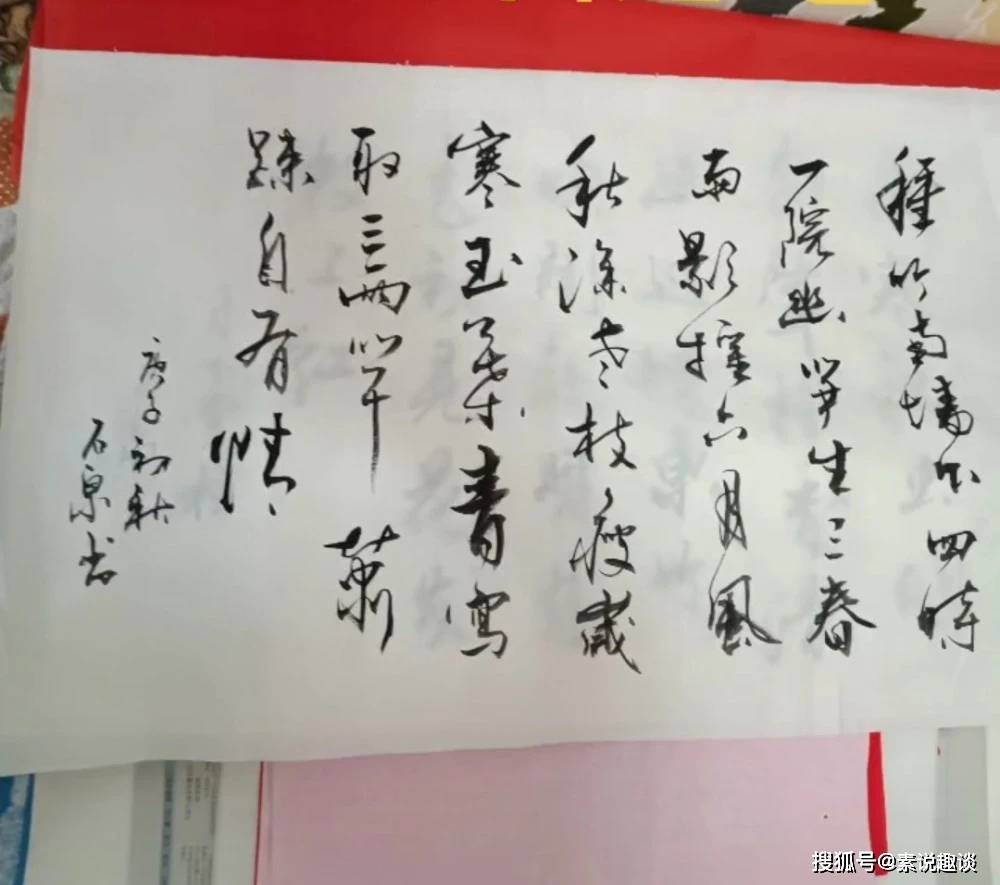 種竹南墙下四時
一院幽笋生三春
雨影摇六月風
秋深老枝瘦歲
寒玉葉青寫
取三兩竿蕭
踈自有情
庚子初秋
石泉书
搜狐号@素说趣谈